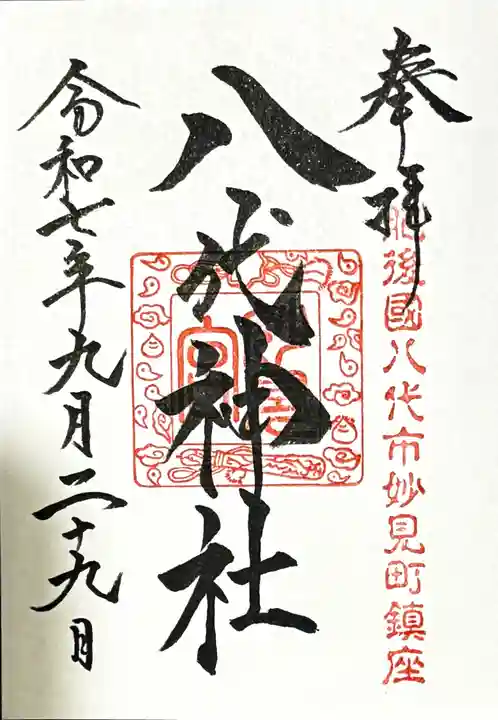 奉拝
肥後國八代市妙見町鎮座
八代神社
令和七年九月二十九日